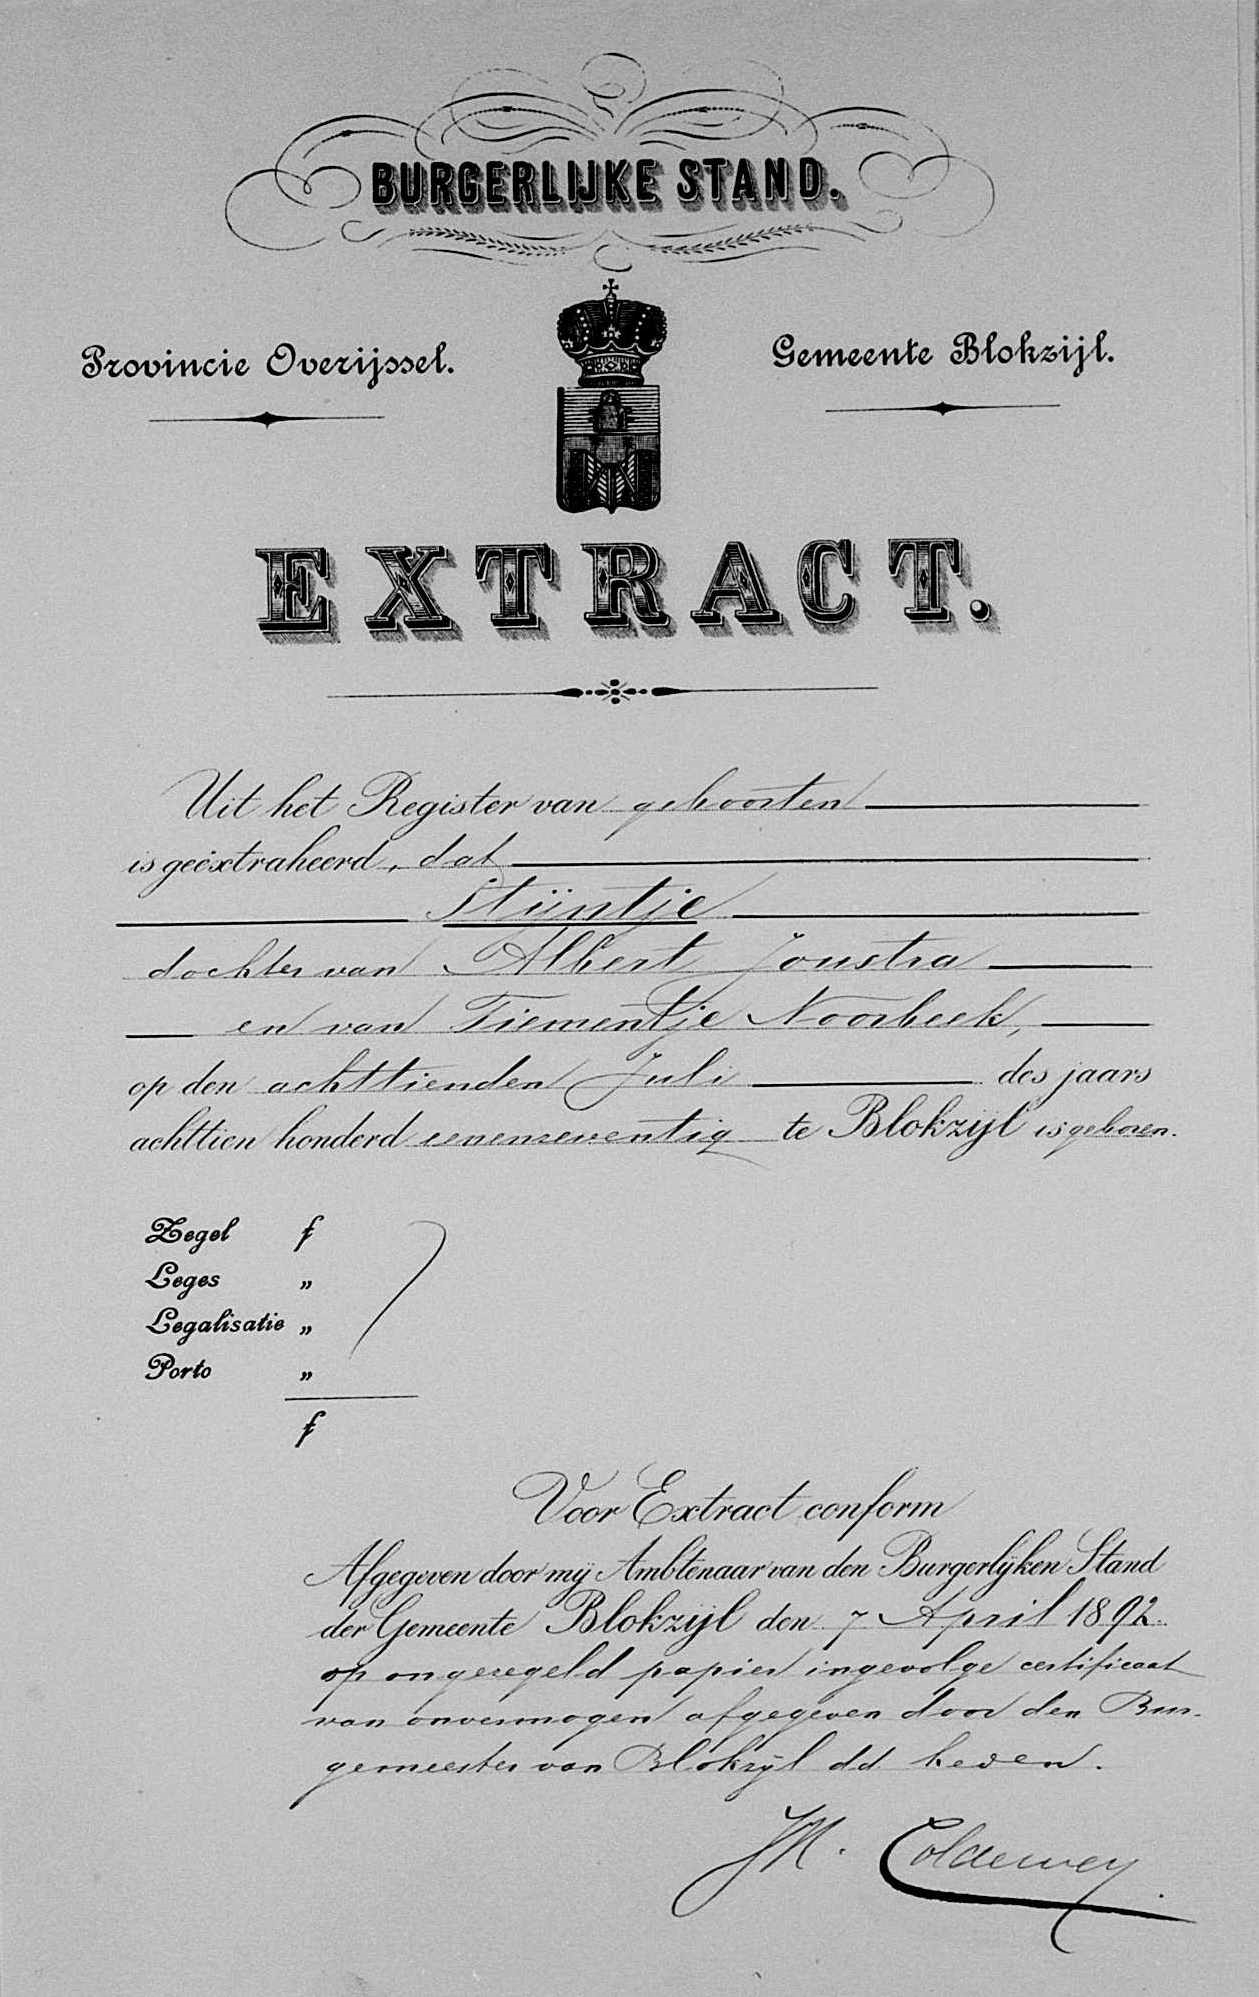 BURGERLIJKE STAND.
Provincie Overijssel.
Gemeente Blokzijl.
EXTRACT.
Uit het Register van geboorten
is geëxtraheerd, dat
Stijntje
dochter van Albert Joustra
en van Tiementje Noorbeek,
op den achttienden Juli des jaars
achttien honderd eenenzeventig te Blokzijl is geboren.
Zegel f
Leges „
Legalisatie „
Porto „
f
Voor Extract conform
Afgegeven door mij Ambtenaar van den Burgerlijken Stand
der Gemeente Blokzijl den 7 April 1892.
op ongezegeld papier ingevolge certificaat
van onvermogen afgegeven door den Bur-
gemeester van Blokzijl dd heden.
Coldewey